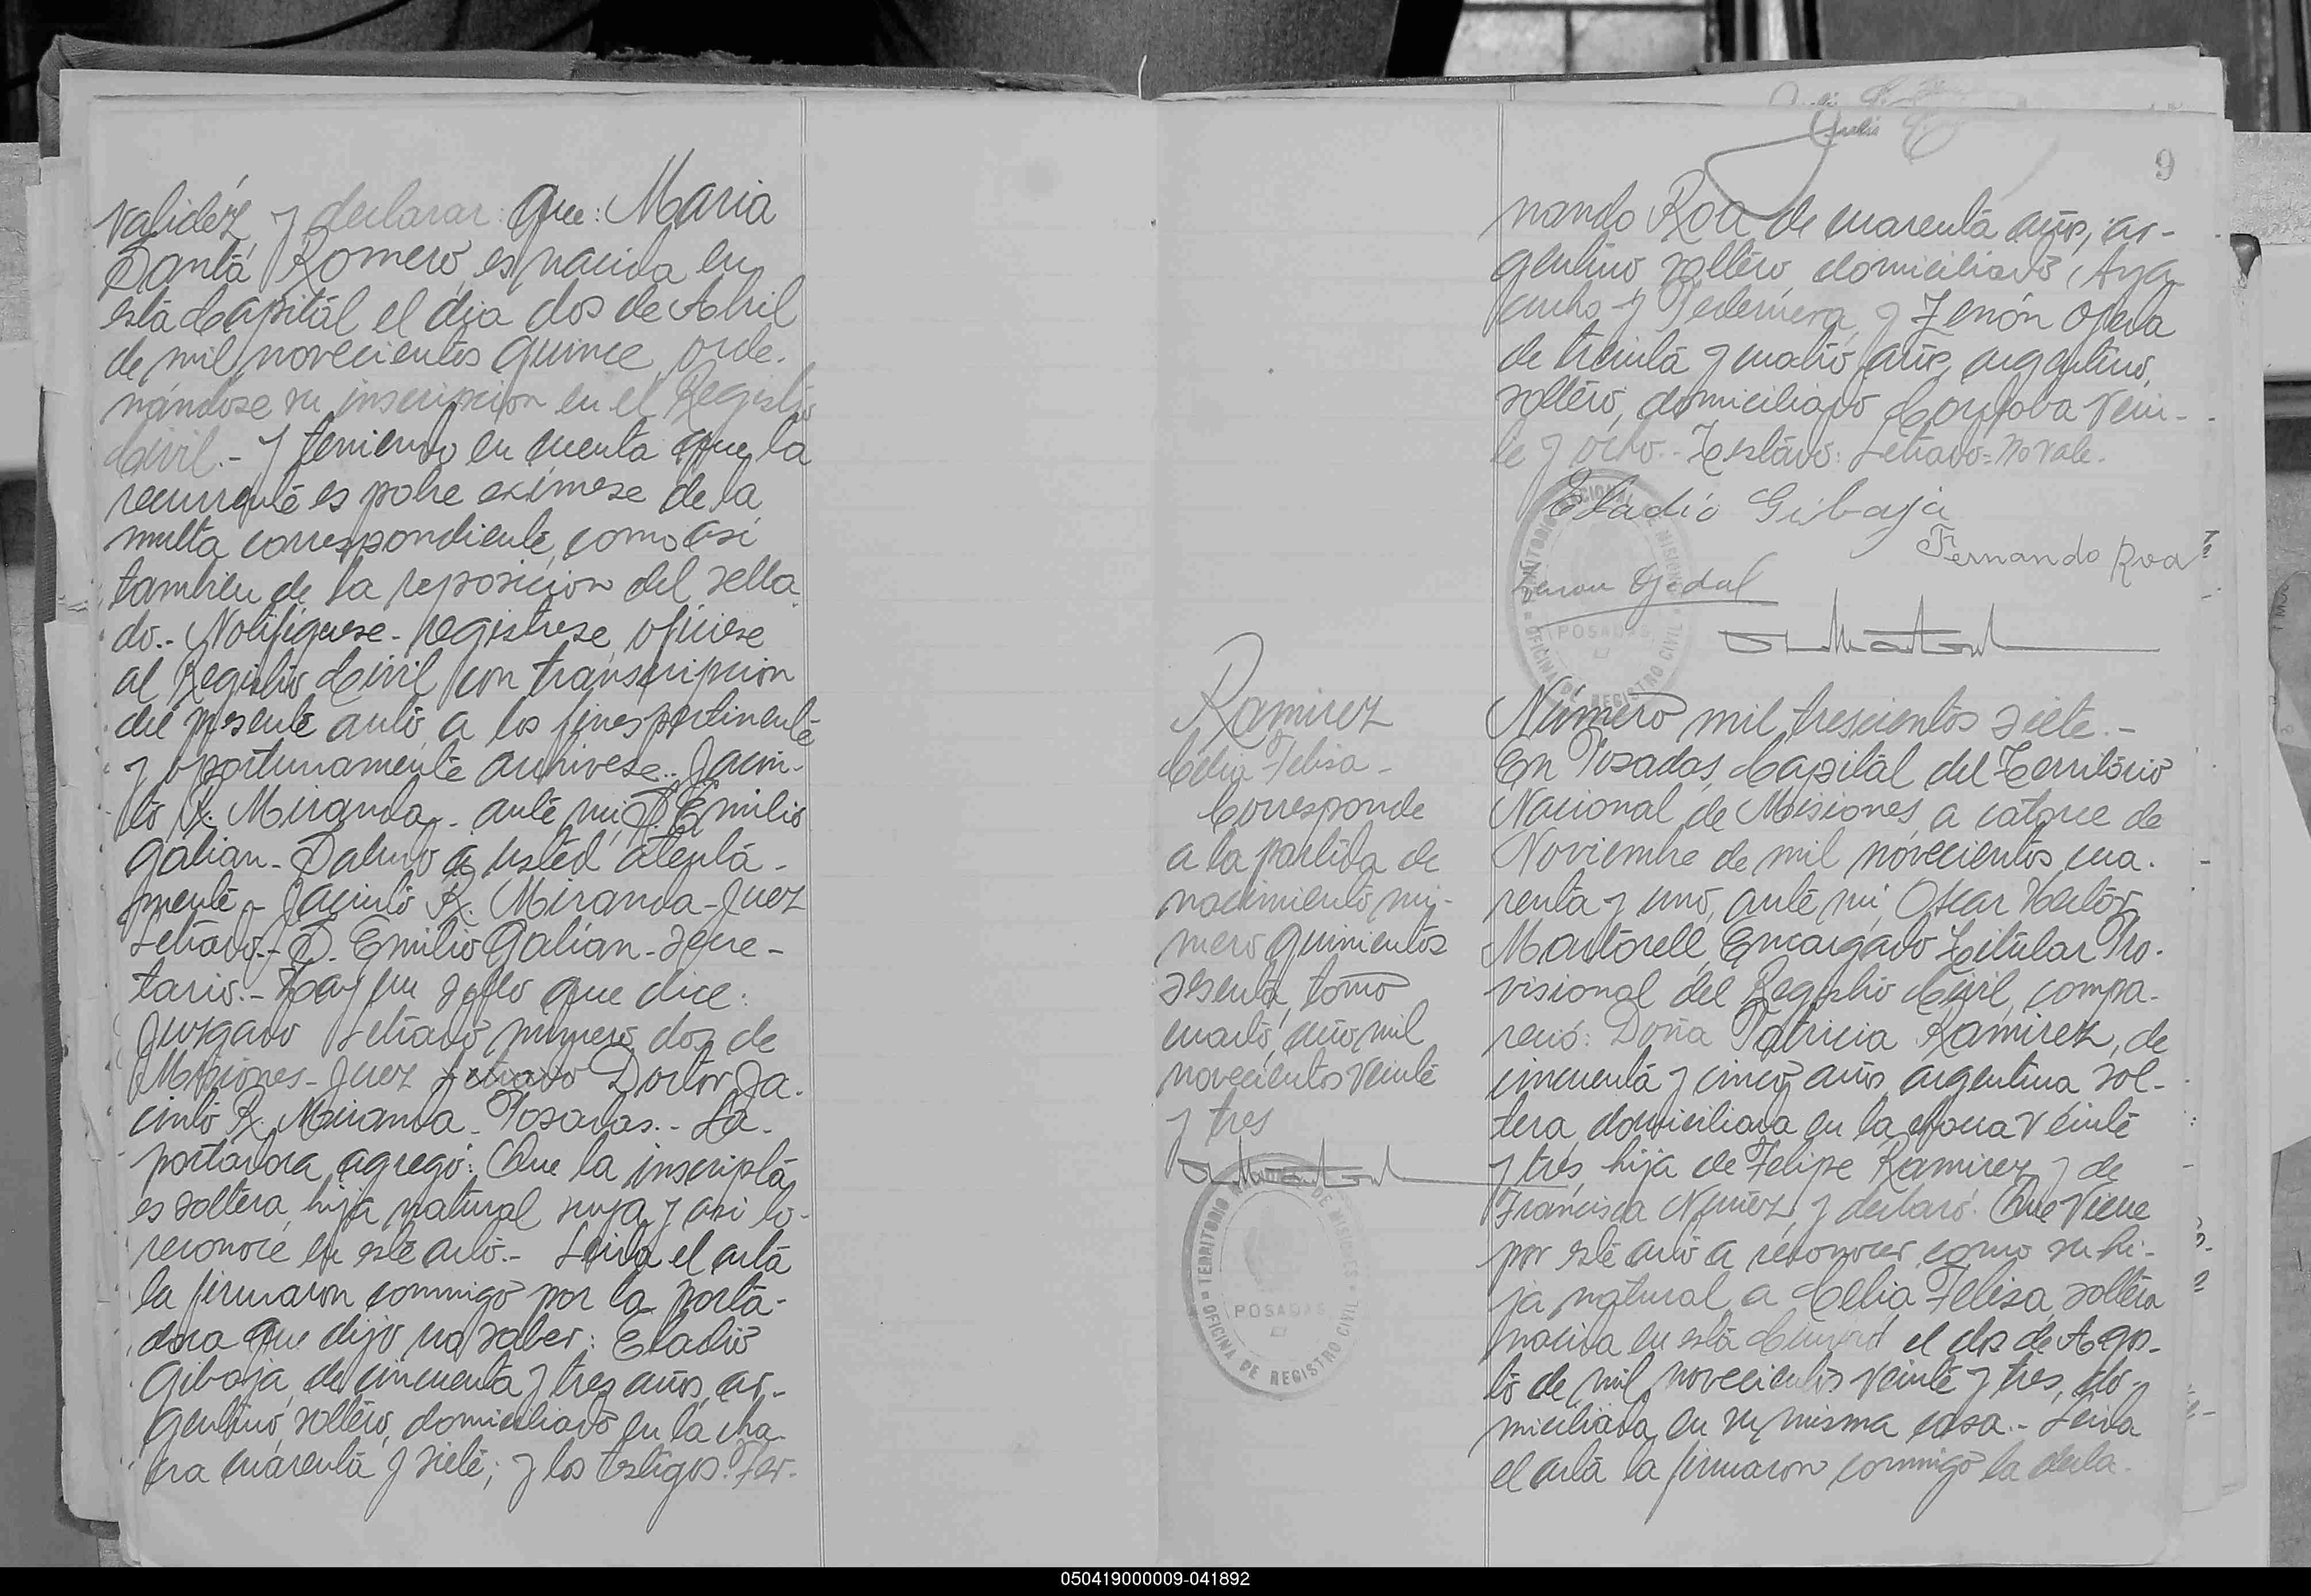 validéz, y declarar: que: Maria
Santa Romero, es nacida en
esta Capital el dia dos de Abril
de mil novecientos quince, orde-
nándose su inscripcion en el Registro
Civil.- Y teniendo en cuenta que la
recurrente es pobre eximese de la
multa correspondiente, como asi
tambien de la reposicion del sella
do.- Notifiquese- registrese, oficiese
al Registro Civil con transcripcion
del presente auto, a los fines pertinente
y oportunamente archivese.. Jacin-
to R. Miranda.- ante mi, S. Emilio
Galian.- Saludo a usted atenta-
mente.- Jacinto R. Miranda- Juez
Letrado.- S. Emilio Galian- Secre-
tario.- Hay un sello que dice:
Juzgado Letrado numero dos de
Misiones- Juez Letrado Doctor Ja-
cinto R. Miranda- Posadas.- La
portadora, agregó: Que la inscripta
es soltera, hija natural suya y asi lo
reconoce en este acto.- Leida el acta
la firmaron conmigo por la porta-
dora que dijo no saber: Eladio
Gibaja, de cincuenta y tres años, ar-
gentino, soltero, domiciliado en la cha-
cra cuarenta y siete; y los testigos: Fer-
9
nando Roa de cuarenta años, ar-
gentino, soltero, domiciliado Aya
cucho y Pedernera, y Zenón Ojeda
de treinta y cuatro años, argentino,
soltero, domiciliado Cordoba Vein-
te y ocho.- Testado: Letrado= no vale.
Eladio Gibaja
Fernando Roa
TERRITORIO NACIONAL DE MISIONES
POSADAS
OFICINA DE REGISTRO CIVIL
Ramirez
Celia Felisa-
Corresponde
a la partida de
nacimiento nú-
mero quinientos
sesenta, tomo
cuarto, año mil
novecientos veinte
y tres
TERRITORIO NACIONAL DE MISIONES
POSADAS
OFICINA DE REGISTRO CIVIL
Número mil trescientos siete.-
En Posadas, Capital del Territorio
Nacional de Misiones, a catorce de
Noviembre de mil novecientos cua-
renta y uno, ante mi, Oscar Hector
Martorell, Encargado Titular Pro-
visional del Registro Civil, compa-
reció: Doña Patricia Ramirez, de
cincuenta y cinco años, argentina sol-
tera, domiciliada en la chacra veinte
y tres, hija de Felipe Ramirez y de
Francisca Nuñez, y declaró: Que viene
por este acto a reconocer como su hi-
ja natural a Celia Felisa, soltera
nacida en esta Ciudad el dos de Agos-
to de mil novecientos veinte y tres, do-
miciliada en su misma casa.- Leida
el acta la firmaron conmigo la decla-
050419000009-041892